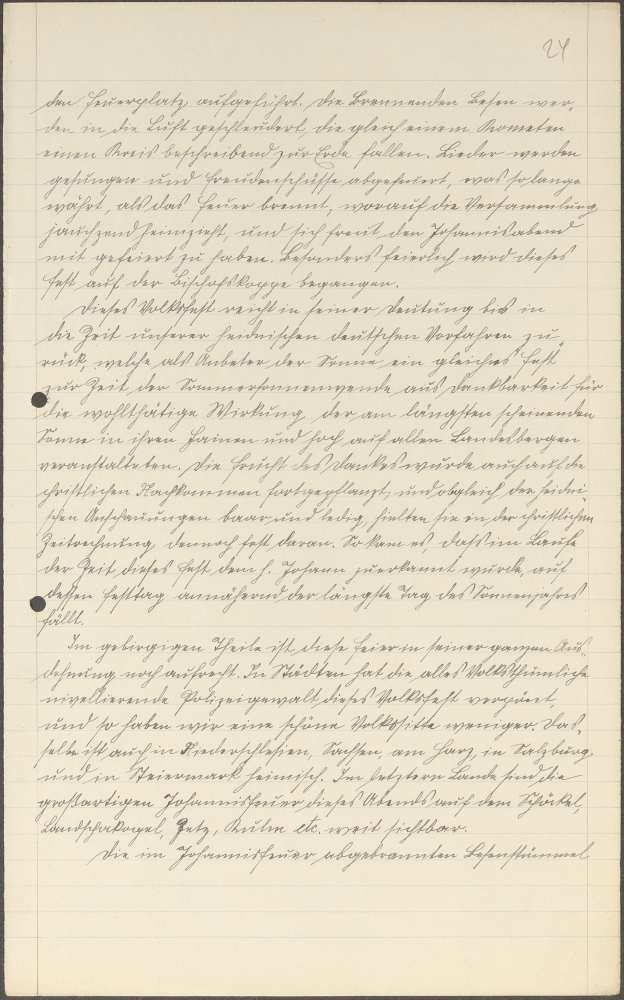 24
den Feuerplatz aufgeführt. Die brennenden Besen wer„
den in die Luft geschleudert, die gleich einem Kometen
einen Kreis beschreibend zur Erde fallen. Lieder werden
gesungen und Freudenschüsse abgefeuert, was solange
währt, als das Feuer brennt, worauf die Versammlung
jauchzend heimzieht, und sich freut den Johannisabend
mit gefeiert zu haben. Besonders feierlich wird dieses
Fest auf der Bischofskoppe begangen.
Dieses Volksfest reicht in seiner Deutung bis in
die Zeit unserer heidnischen deutschen Vorfahren zu„
rück, welche als Anbeter der Sonne ein gleiches Fest
zur Zeit der Sommersonnenwende aus Dankbarkeit für
die wohlthätige Wirkung der am längsten scheinenden
Sonne in ihren Hainen und hoch auf allen Landesbergen
veranstalteten. Die Frucht des Dankes wurde auch auf die
christlichen Nachkommen fortgepflanzt, und obgleich der heidni„
schen Anschauungen baar und ledig, hielten sie in der christlichen
Zeitrechnung dennoch fest daran. So kam es, dass im Laufe
der Zeit dieses Fest dem h. Johann zuerkannt wurde, auf
dessen Festtag annähernd der längste Tag des Sonnenjahres
fällt.
Im gebirgigen Theile ist diese Feier in seiner ganzen Aus„
dehnung noch aufrecht. In Städten hat die alles Volksthümliche
nivellierende Polizeigewalt dieses Volksfest verpönt,
und so haben wir eine schöne Volkssitte weniger. Das„
selbe ist auch in Niederschlesien, Sachsen, am Harz, in Salzburg
und in Steiermark heimisch. Im letztern Lande sind die
großartigen Johannisfeuer dieses Abends auf dem Schöckel,
Landschakogel, Zetz, Kulm etc. weit sichtbar.
Die im Johannisfeuer abgebrannten Besenstümmel